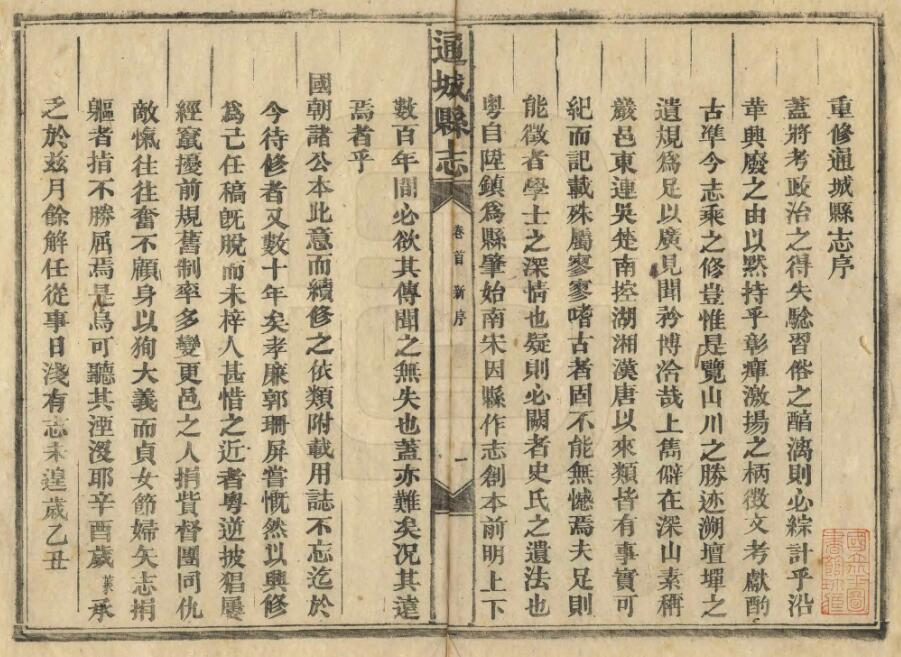 重修通城縣志序
蓋將考政治之得失驗習俗之醕漓則必綜計乎沿
革興廢之由以默持乎彰癉激揚之柄徵文考獻酌
古準今志乘之修豈惟是覽山川之勝迹溯壇墠之
遺規爲足以廣見聞矜博洽哉上雋僻在深山素稱
巖邑東連吳楚南控湖湘漢唐以來類皆有事實可
紀而記載殊屬寥寥嗜古者固不能無憾焉夫足則
能徵者學士之深情也疑則必闕者史氏之遺法也
粵自陞鎮爲縣肇始南宋因縣作志創本前明上下
通城縣志
卷首 新序
一
數百年間必欲其傳聞之無失也蓋亦難矣況其遠
焉者乎
國朝諸公本此意而續修之依類附載用誌不忘迄於
今待修者又數十年矣孝廉郭珊屏嘗慨然以興修
爲己任稿旣脫而未梓人甚惜之近者粵逆披猖屢
經竄擾前規舊制率多變更邑之人捐貲督團同仇
敵愾往往奮不顧身以狥大義而貞女節婦矢志捐
軀者指不勝屈焉是烏可聽其湮沒耶辛酉歲蓁承
乏於兹月餘解任從事日淺有志未遑歲乙丑